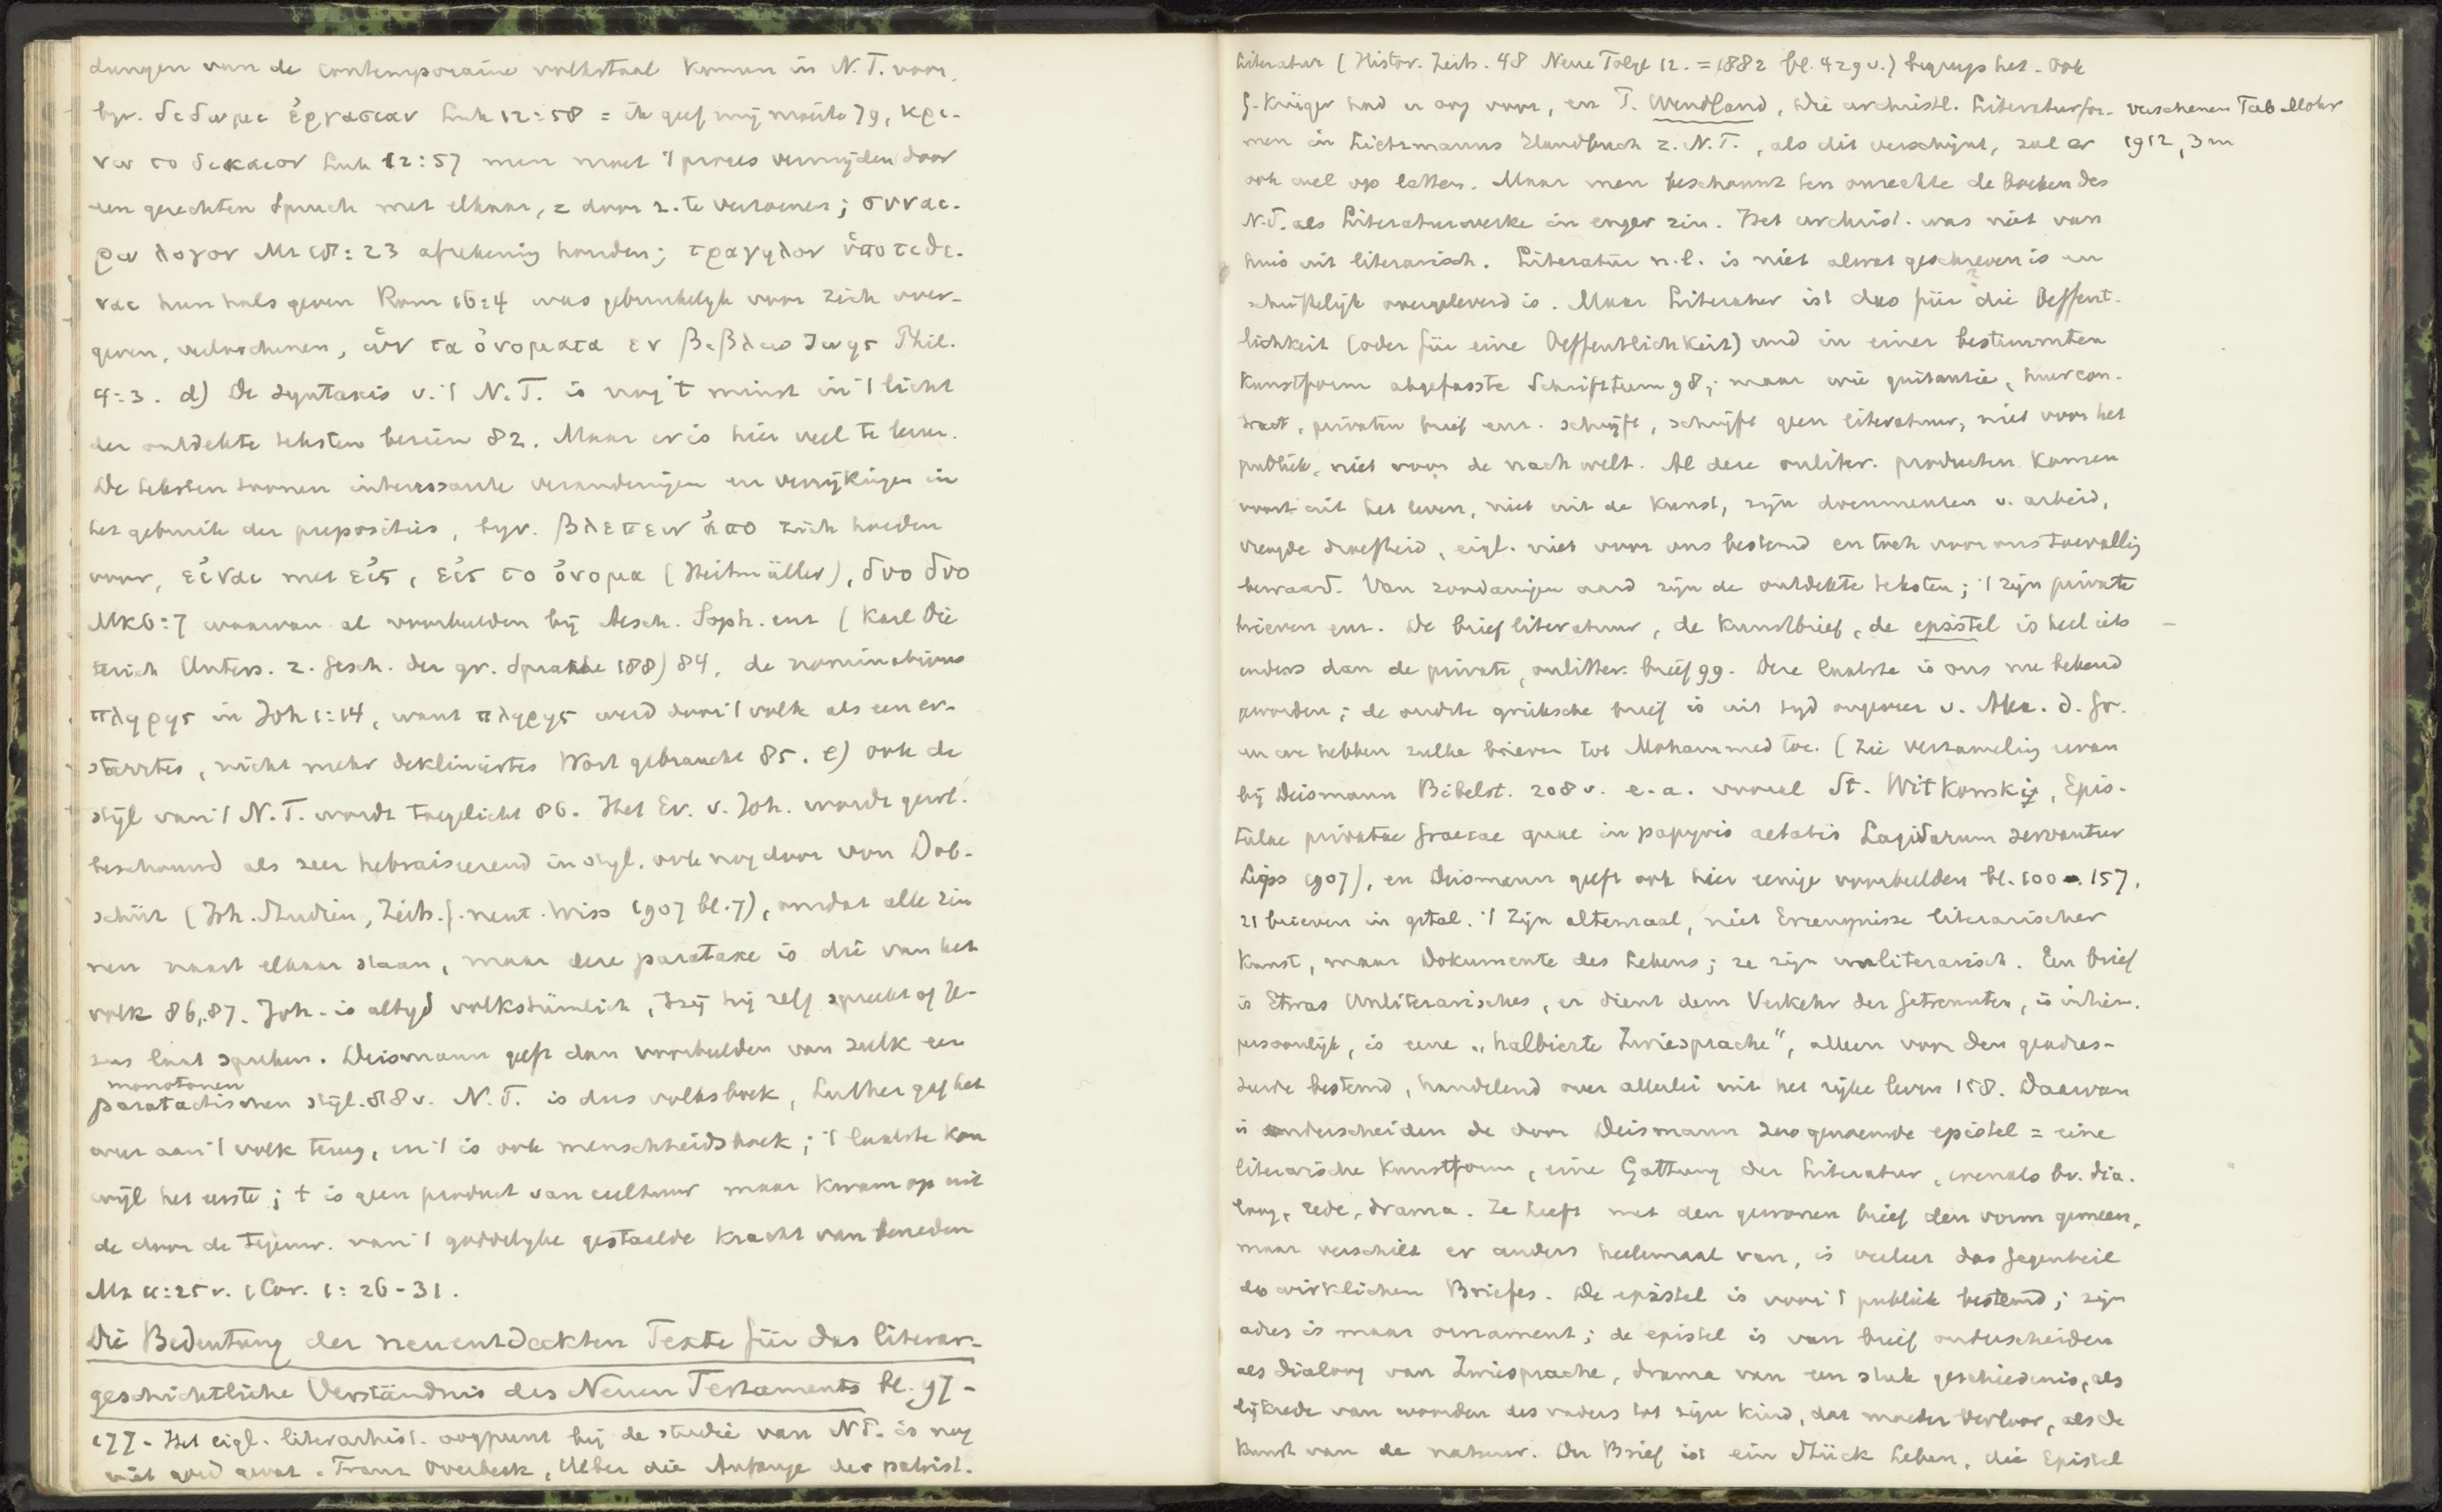 dungen van de contemporaine volkstaal komen in N.T. voor,
byv. διδωμι ἐργασιαν Luk 12:58 = ik geef mij moeite 79, κρι-
νειν το δικαιον Luk 12:57 men moet 't proces vermijden door
een gerechten Spruch met elkaar, = door z. te verzoenen; συναι-
ρειν λογον Mt 18:23 afrekening houden; τραχηλον ὑποτιθε-
ναι hun hals geven Rom 16:4 was gebruikelijk voor zich over-
geven, ὡν τα ὀνοματα εν βιβλῳ ζωης Phil.
4:3. d) De syntaxis v. 't N.T. is nog 't minst in 't licht
der ontdekte teksten bezien 82. Maar er is hier veel te leeren.
De teksten toonen interessante veranderingen en verrijkingen in
het gebruik der preposities, byv. βλεπειν ἀπο zich hoeden
voor, εἰναι met εἰς, εἰς το ὀνομα (Heitmüller), δυο δυο
Mk 6:7 waarvan al voorbeelden bij Aesch. Soph. enz (Karl Die
terich Unters. z. Gesch. der gr. Sprache 188) 84, de nominativus
πληρης in Joh 1:14, want πληρης werd door 't volk als een er-
starrtes, nicht mehr dekliniertes Wort gebraucht 85. e) ook de
stijl van 't N.T. wordt toegelicht 86. Het Ev. v. Joh. wordt gewl.
beschouwd als zeer hebraiseerend in stijl, ook nog door von Dob-
schütz (Joh. Studien, Zeits. f. neut. Wiss 1907 bl. 7), omdat alle zin
nen naast elkaar staan, maar deze parataxe is die van het
volk 86, 87. Joh. is altyd volkstümlich, 'tzij hij zelf spreekt of Je-
zus laat spreken. Deismann geeft dan voorbeelden van zulk een
monotonen
paratactischen stijl. 88 v. N.T. is dus volksboek, Luther gaf het
weer aan 't volk terug, en 't is ook menschheidsboek; 't laatste kon
wijl het eerste; t is geen product van cultuur maar kwam op uit
de door de tegenw. van 't goddelijke gestaalde kracht van beneden
Mt 11:25 v. 1 Cor. 1:26-31.
Die Bedeutung der neuentdeckten Texte für das literar-
geschichtliche Verständnis des Neuen Testaments bl. 97-
177. Het eigl. literarhist. oogpunt bij de studie van NT. is nog
niet goed gevat. Franz Overbeck, Ueber die Anfänge der patrist.
Literatur (Histor. Zeits. 48 Neue Folge 12. = 1882 bl. 429 v.) begreep het. Ook
G. Krüger had er oog voor, en P. Wendland, Die urchristl. Literaturfor- verschenen Tüb Mohr
men in Lietzmanns Handbuch z. N.T., als dit verschijnt, zal er 1912, 3 m
ook wel op letten. Maar men beschouwt ten onrechte de boeken des
N.T. als Literaturwerke in enger zin. Het urchrist. was niet van
huis uit literarisch. Literatur n.l. is niet alwat geschreven is en
schriftelijk overgeleverd is. Maar Literatur ist das für die Oeffent-
lichkeit (oder für eine Oeffentlichkeit) und in einer bestimmten
Kunstform abgefasste Schrifttum 98; maar wie quitantie, huurcon-
tract, privaten brief enz. schrijft, schrijft geen literatuur, niet voor het
publiek, niet voor de nachwelt. Al deze onliter. producten komen
voort uit het leven, niet uit de kunst, zijn documenten v. arbeid,
vreugde droefheid, eigl. niet voor ons bestemd en toch voor ons toevallig
bewaard. Van zoodanigen aard zijn de ontdekte teksten; 't zijn private
brieven enz. De briefliteratuur, de kunstbrief, de epistel is heel iets
anders dan de private, onlitter. brief 99. Deze laatste is ons nu bekend
geworden; de oudste grieksche brief is uit tyd ongeveer v. Alex. d. Gr.
en we hebben zulke brieven tot Mohammed toe. (Zie verzameling ervan
bij Deismann Bibelst. 208 v. e.a. vooral St. Witkowski, Epis-
tulae privatae Graecae quae in papyris aetatis Lagidarum servantur
Lips 1907), en Deismann geeft ook hier eenige voorbeelden bl. 100-157,
21 brieven in getal. 't Zijn altemaal, niet Erzeugnisse literarischer
Kunst, maar Dokumente des Lebens; ze zijn unliterarisch. Een brief
is Etwas Unliterarisches, er dient dem Verkehr der Getrennten, is intiem,
persoonlijk, is eine „halbierte Zwiesprache", alleen voor den geadres-
seerde bestemd, handelend over allerlei uit het rijke leven 158. Daarvan
is onderscheiden de door Deismann zoo genoemde epistel = eine
literarische Kunstform, eine Gattung der Literatur, evenals bv. dia-
loog, rede, drama. Ze heeft met den gewonen brief den vorm gemeen,
maar verschilt er anders heelemaal van, is veeleer das Gegenteil
des wirklichen Briefes. De epistel is voor 't publiek bestemd; zijn
adres is maar ornament; de epistel is van brief onderscheiden
als dialoog van Zwiesprache, drama van een stuk geschiedenis, als
lijkrede van woorden des vaders tot zijn kind, dat moeder verloor, als de
kunst van de natuur. Der Brief ist ein Stück Leben, die Epistel